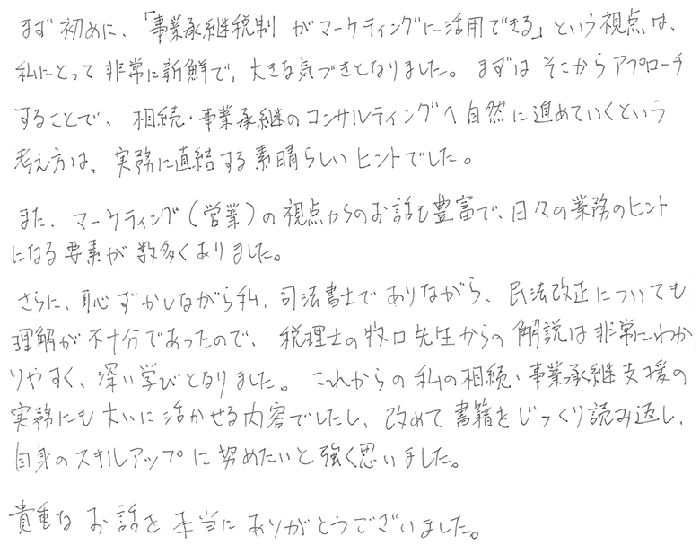 まず初めに、「事業承継税制がマーケティングに活用できる」という視点は、
私にとって非常に新鮮で、大きな気づきとなりました。まずはそこからアプローチ
することで、相続・事業承継のコンサルティングへ自然に進めていくという
考え方は、実務に直結する素晴らしいヒントでした。
また、マーケティング(営業)の視点からのお話も豊富で、日々の業務のヒント
になる要素が数多くありました。
さらに、恥ずかしながら私、司法書士でありながら、民法改正についても
理解が不十分であったので、税理士の牧口先生からの解説は非常にわか
りやすく、深い学びとなりました。これからの私の相続・事業承継支援の
実務にも大いに活かせる内容でしたし、改めて書籍をじっくり読み返し、
自身のスキルアップに努めたいと強く思いました。
貴重なお話を本当にありがとうございました。